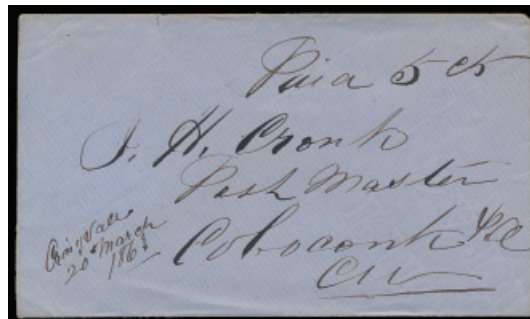 Paid 5 cts
J. H. Cronk
Post Master
Coboconk P.O.
CW
20 March
1863